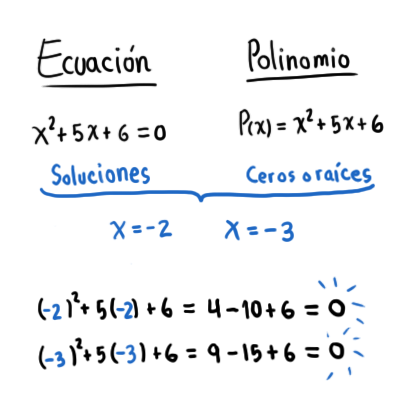 Ecuación Polinomio
x²+5x+6=0 P(x)=x²+5x+6
Soluciones Ceros o raíces
x=-2 x=-3
(-2)²+5(-2)+6=4-10+6=0
(-3)²+5(-3)+6=9-15+6=0